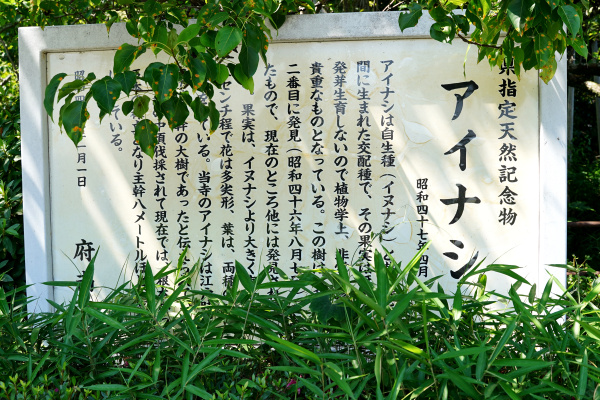 県指定天然記念物
アイナシ
昭和四十七年四月
アイナシは自生種（イヌナシ）
間に生まれた交配種で、その果実は
発芽生育しないので植物学上、非
貴重なものとなっている。この樹は
二番目に発見（昭和四十六年八月十
たもので、現在のところ他には発見
果実は、イヌナシより大きく
センチ程で花は多尖形、葉は、両種
いる。当寺のアイナシは江
群の大樹であったと伝
頃伐採されて現在では、根
となり主幹八メートルほ
ている。
昭 二月一日
府